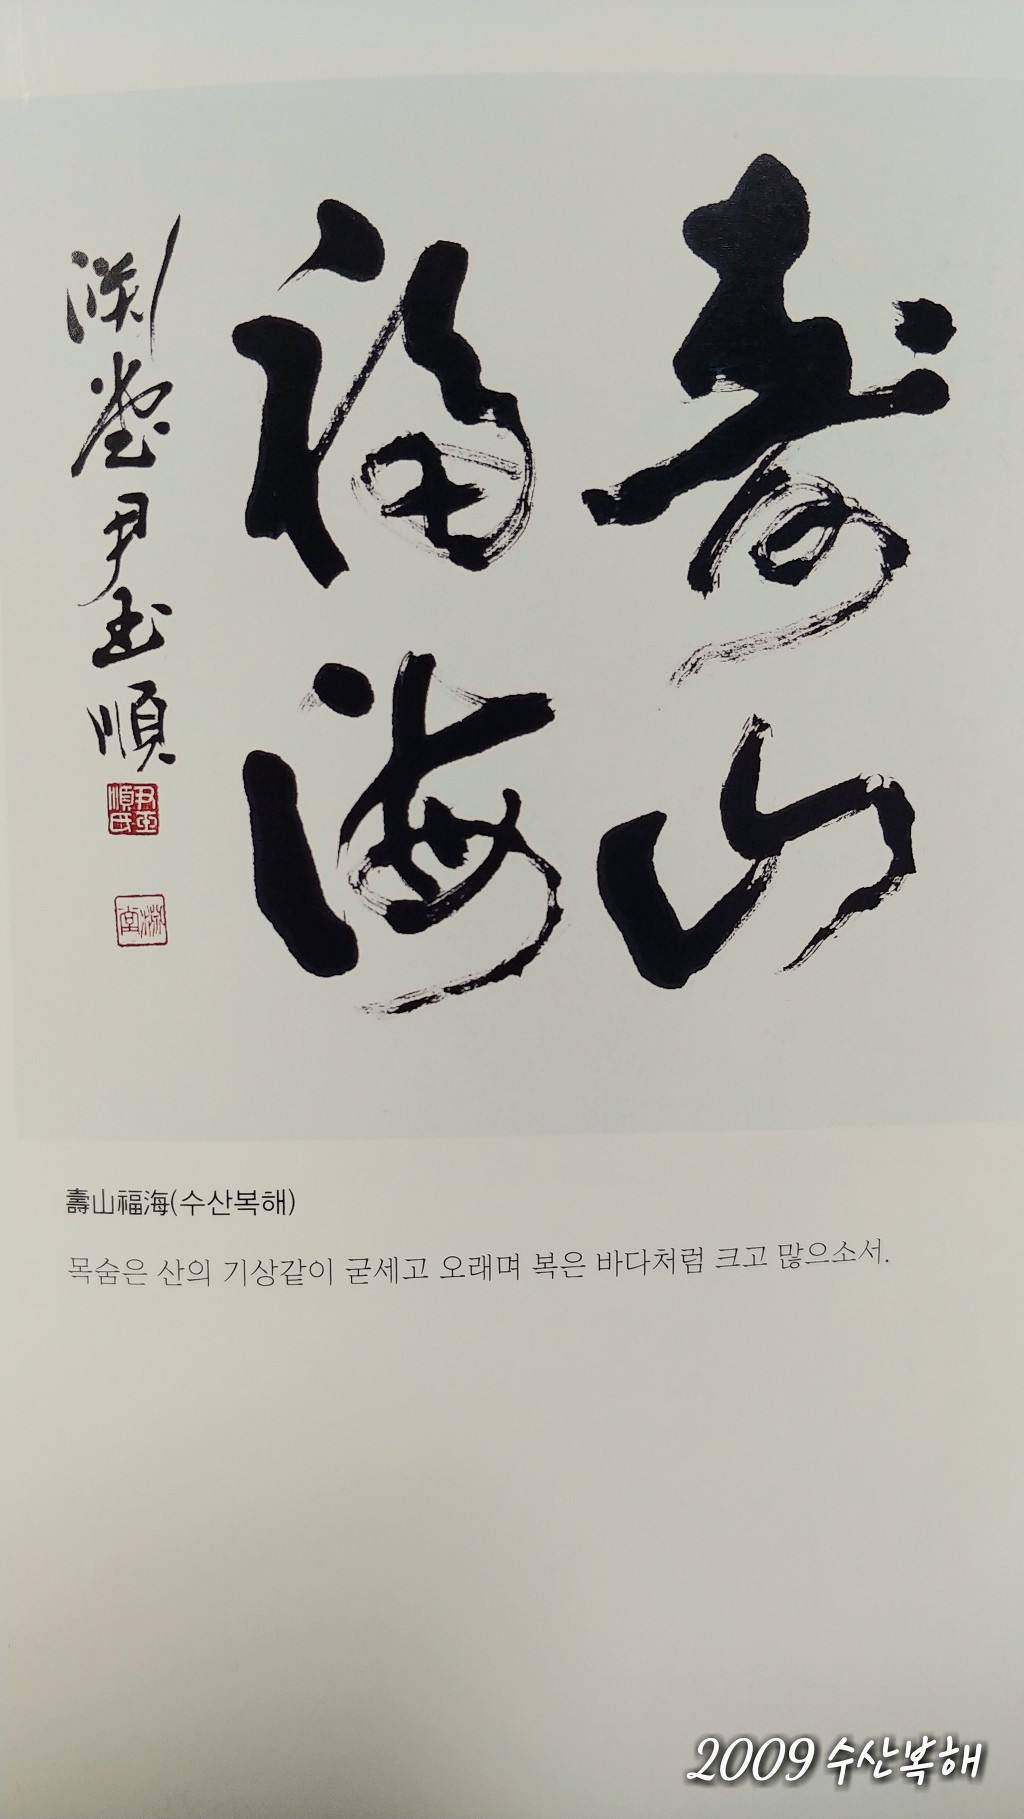 壽山
福海
淵堂尹玉順
壽山福海(수산복해)
목숨은 산의 기상같이 굳세고 오래며 복은 바다처럼 크고 많으소서.
2009 수산복해